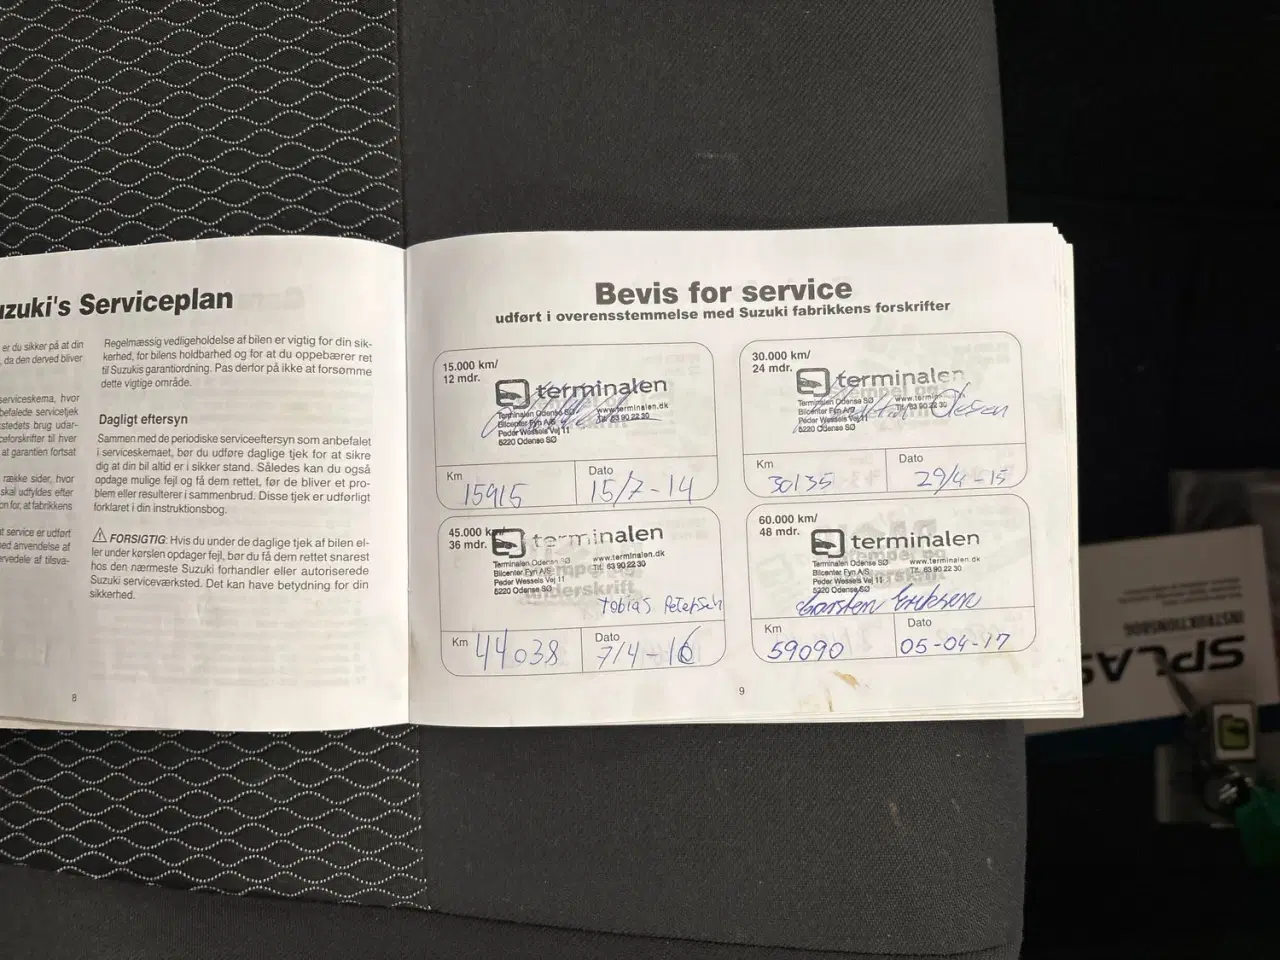 uzuki's Serviceplan
er du sikker på at din
, da den derved bliver
serviceskema, hvor
befalede servicetjek
stedets brug udar-
ceforskrifter til hver
at garantien fortsat
række sider, hvor
skal udfyldes efter
on for, at fabrikkens
t service er udført
ed anvendelse af
rvedele af tilsva-
Regelmæssig vedligeholdelse af bilen er vigtig for din sik-
kerhed, for bilens holdbarhed og for at du oppebærer ret
til Suzukis garantiordning. Pas derfor på ikke at forsømme
dette vigtige område.
Dagligt eftersyn
Sammen med de periodiske serviceeftersyn som anbefalet
i serviceskemaet, bør du udføre daglige tjek for at sikre
dig at din bil altid er i sikker stand. Således kan du også
opdage mulige fejl og få dem rettet, før de bliver et pro-
blem eller resulterer i sammenbrud. Disse tjek er udførligt
forklaret i din instruktionsbog.
FORSIGTIG: Hvis du under de daglige tjek af bilen el-
ler under kørslen opdager fejl, bør du få dem rettet snarest
hos den nærmeste Suzuki forhandler eller autoriserede
Suzuki serviceværksted. Det kan have betydning for din
sikkerhed.
8
Bevis for service
udført i overensstemmelse med Suzuki fabrikkens forskrifter
15.000 km/
12 mdr.
terminalen
Terminalen Odense SØ
www.terminalen.dk
Bilcenter Fyn A/S
Tlf. 63 90 22 30
Peder Wessels Vej 11
5220 Odense SØ
Km
15915
Dato
15/7-14
30.000 km/
24 mdr.
terminalen
Terminalen Odense SØ
www.terminalen.dk
Bilcenter Fyn A/S
Tlf. 63 90 22 30
Peder Wessels Vej 11
5220 Odense SØ
Olesen
Km
30135
Dato
29/4-15
45.000 km/
36 mdr.
terminalen
Terminalen Odense SØ
www.terminalen.dk
Bilcenter Fyn A/S
Tlf. 63 90 22 30
Peder Wessels Vej 11
5220 Odense SØ
Tobias Petersen
Km
44038
Dato
7/4-16
60.000 km/
48 mdr.
terminalen
Terminalen Odense SØ
www.terminalen.dk
Bilcenter Fyn A/S
Tlf. 63 90 22 30
Peder Wessels Vej 11
5220 Odense SØ
Carsten Eriksen
Km
59090
Dato
05-04-17
9
SPLAS
INSTRUKTIONSBOG